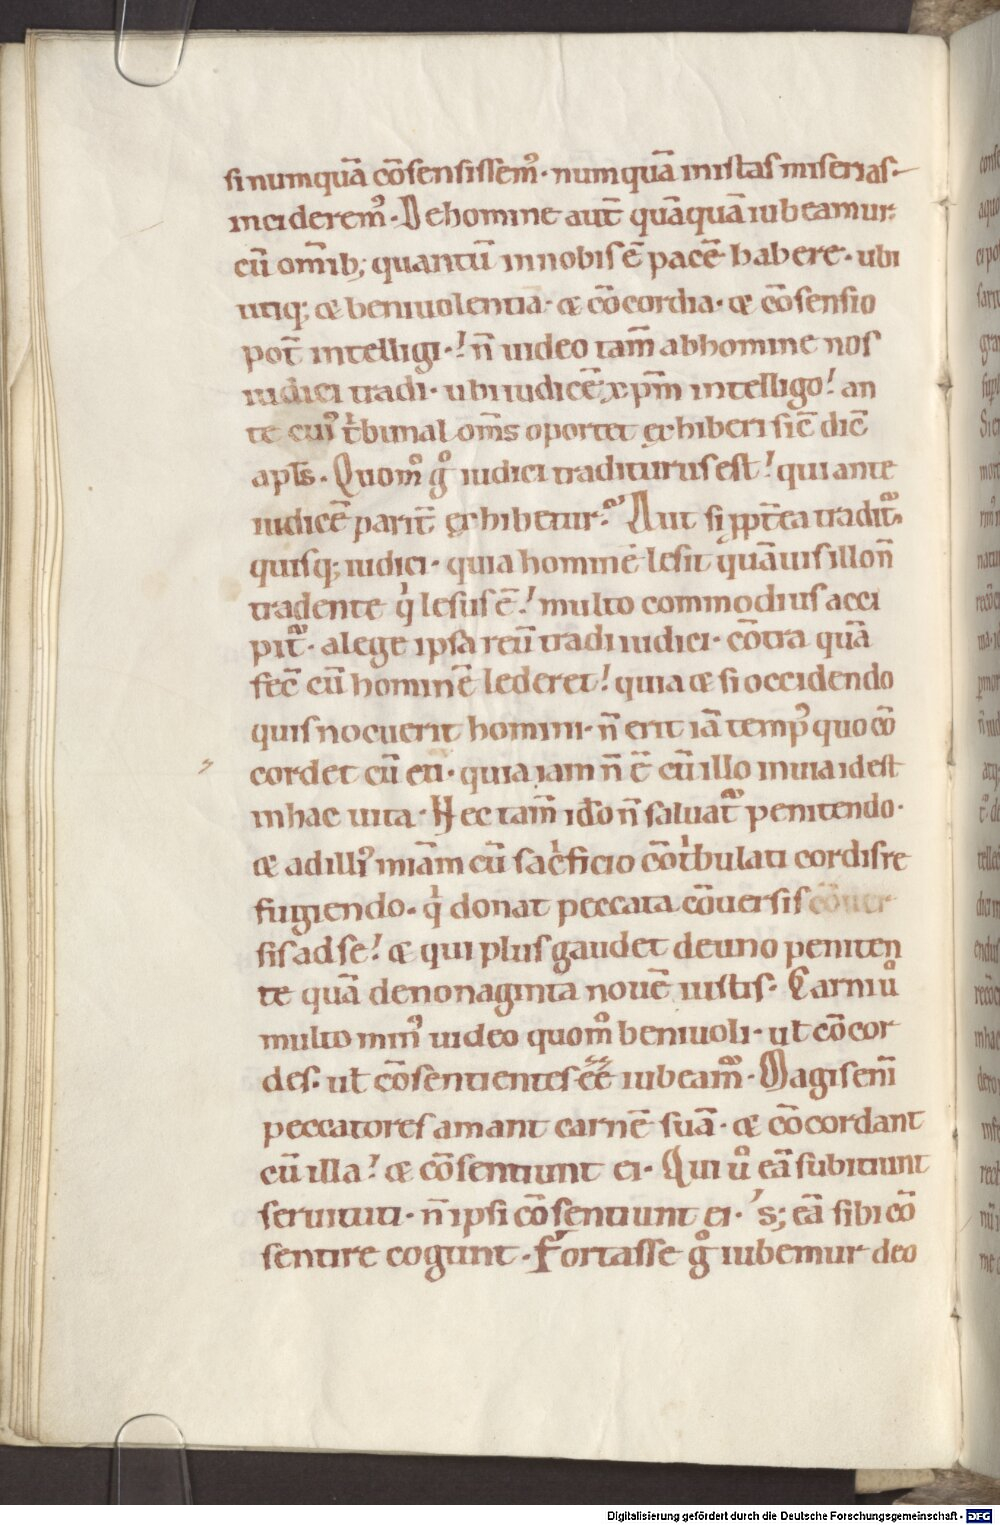 si numquā cōsensissem᷒· numquā in istas miserias·
inciderem᷒· De homine aut̄ quāquā iubeamur;
cū om̄ib; quantū in nobis ē pacē habere· ubi
utiq; & beniuolentia· & cōcordia· & cōsensio
pot̄ intelligi·! n̄ uideo tam̄ ab homine nos
iudici tradi· ubi iudicē xp̄m intelligo! an
te cui᷒ tͥbunal om̄s oportet exhiberi sic̄ dic̄
apl̄s· Quom̊ g̊ iudici traditurus est! qui ante
iudicē parit̄ exhibetur? Aut si ꝓpt̄ea tradit᷑
quisq; iudici· quia hominē lesit quāuis illo n̄
tradente qͥ lesus ē! multo commodius acci
pit᷑· a lege ipsa reū tradi iudici· cōtra quā
fec̄ cū hominē lederet! quia & si occidendo
quis nocuerit homini· n̄ erit iā temp᷒ quo cō
cordet cū eū· quia iam n̄ ē cū illo in uia id est
in hac uita· Hec tam̄ id̄o n̄ saluat᷑ penitendo·
& ad illi᷒ mīam cū sacͥficio cōtͥbulati cordis re
fugiendo· qͥ donat peccata cōuersis cōuer
sis ad se! & qui plus gaudet de uno peniten
te quā de nonaginta nouē iustis· Carni ů
multo min᷒ uideo quom̊ beniuoli· ut̄ cōcor
des· ut̄ cōsentientes ēē iubeam᷒· Magis eni̅
peccatores amant carnē suā· & cōcordant
cū illa! & cōsentiunt ei· Qui ů eā subitiunt
seruituti· n̄ ipsi cōsentiunt ei· s; eā sibi cō
sentire cogunt· Fortasse g̊ iubemur deo
Digitalisierung gefördert durch die Deutsche Forschungsgemeinschaft - DFG